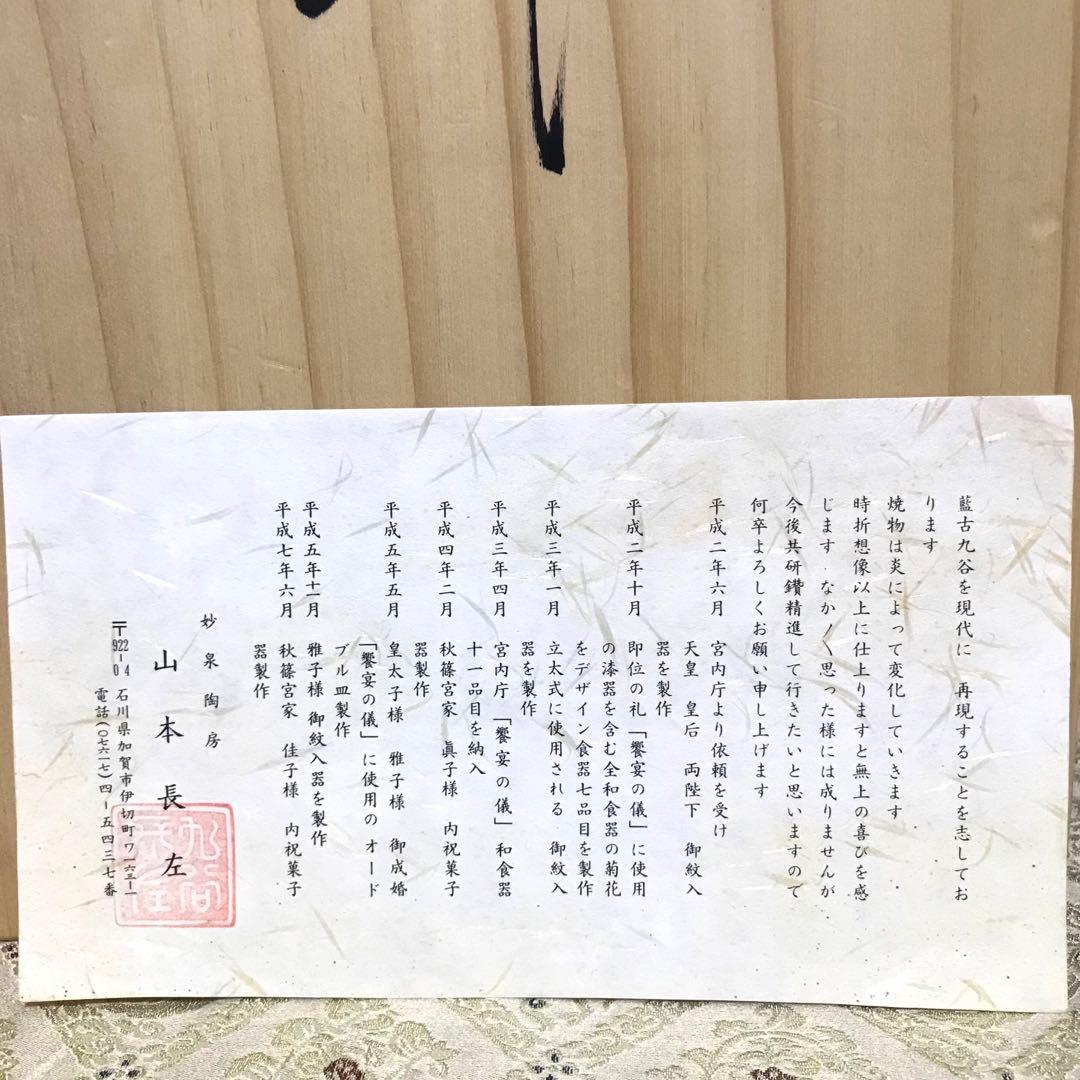 藍古九谷を現代に 再現することを志してお
ります
焼物は炎によって変化していきます
時折想像以上に仕上りますと無上の喜びを感
じます なか〳〵思った様には成りませんが
今後共研鑽精進して行きたいと思いますので
何卒よろしくお願い申し上げます
平成二年六月 宮内庁より依頼を受け
天皇 皇后 両陛下 御紋入
器を製作
平成二年十月 即位の礼「饗宴の儀」に使用
の漆器を含む全和食器の菊花
をデザイン食器七品目を製作
平成三年一月 立太式に使用される 御紋入
器を製作
平成三年四月 宮内庁「饗宴の儀」和食器
十一品目を納入
平成四年二月 秋篠宮家 眞子様 内祝菓子
器製作
平成五年五月 皇太子様 雅子様 御成婚
「饗宴の儀」に使用のオード
ブル皿製作
平成五年十一月 雅子様 御紋入器を製作
平成七年六月 秋篠宮家 佳子様 内祝菓子
器製作
妙泉陶房
山本長左
〒922-04 石川県加賀市伊切町ワ一六三ー一
電話(〇七六一七)四ー五四三七番